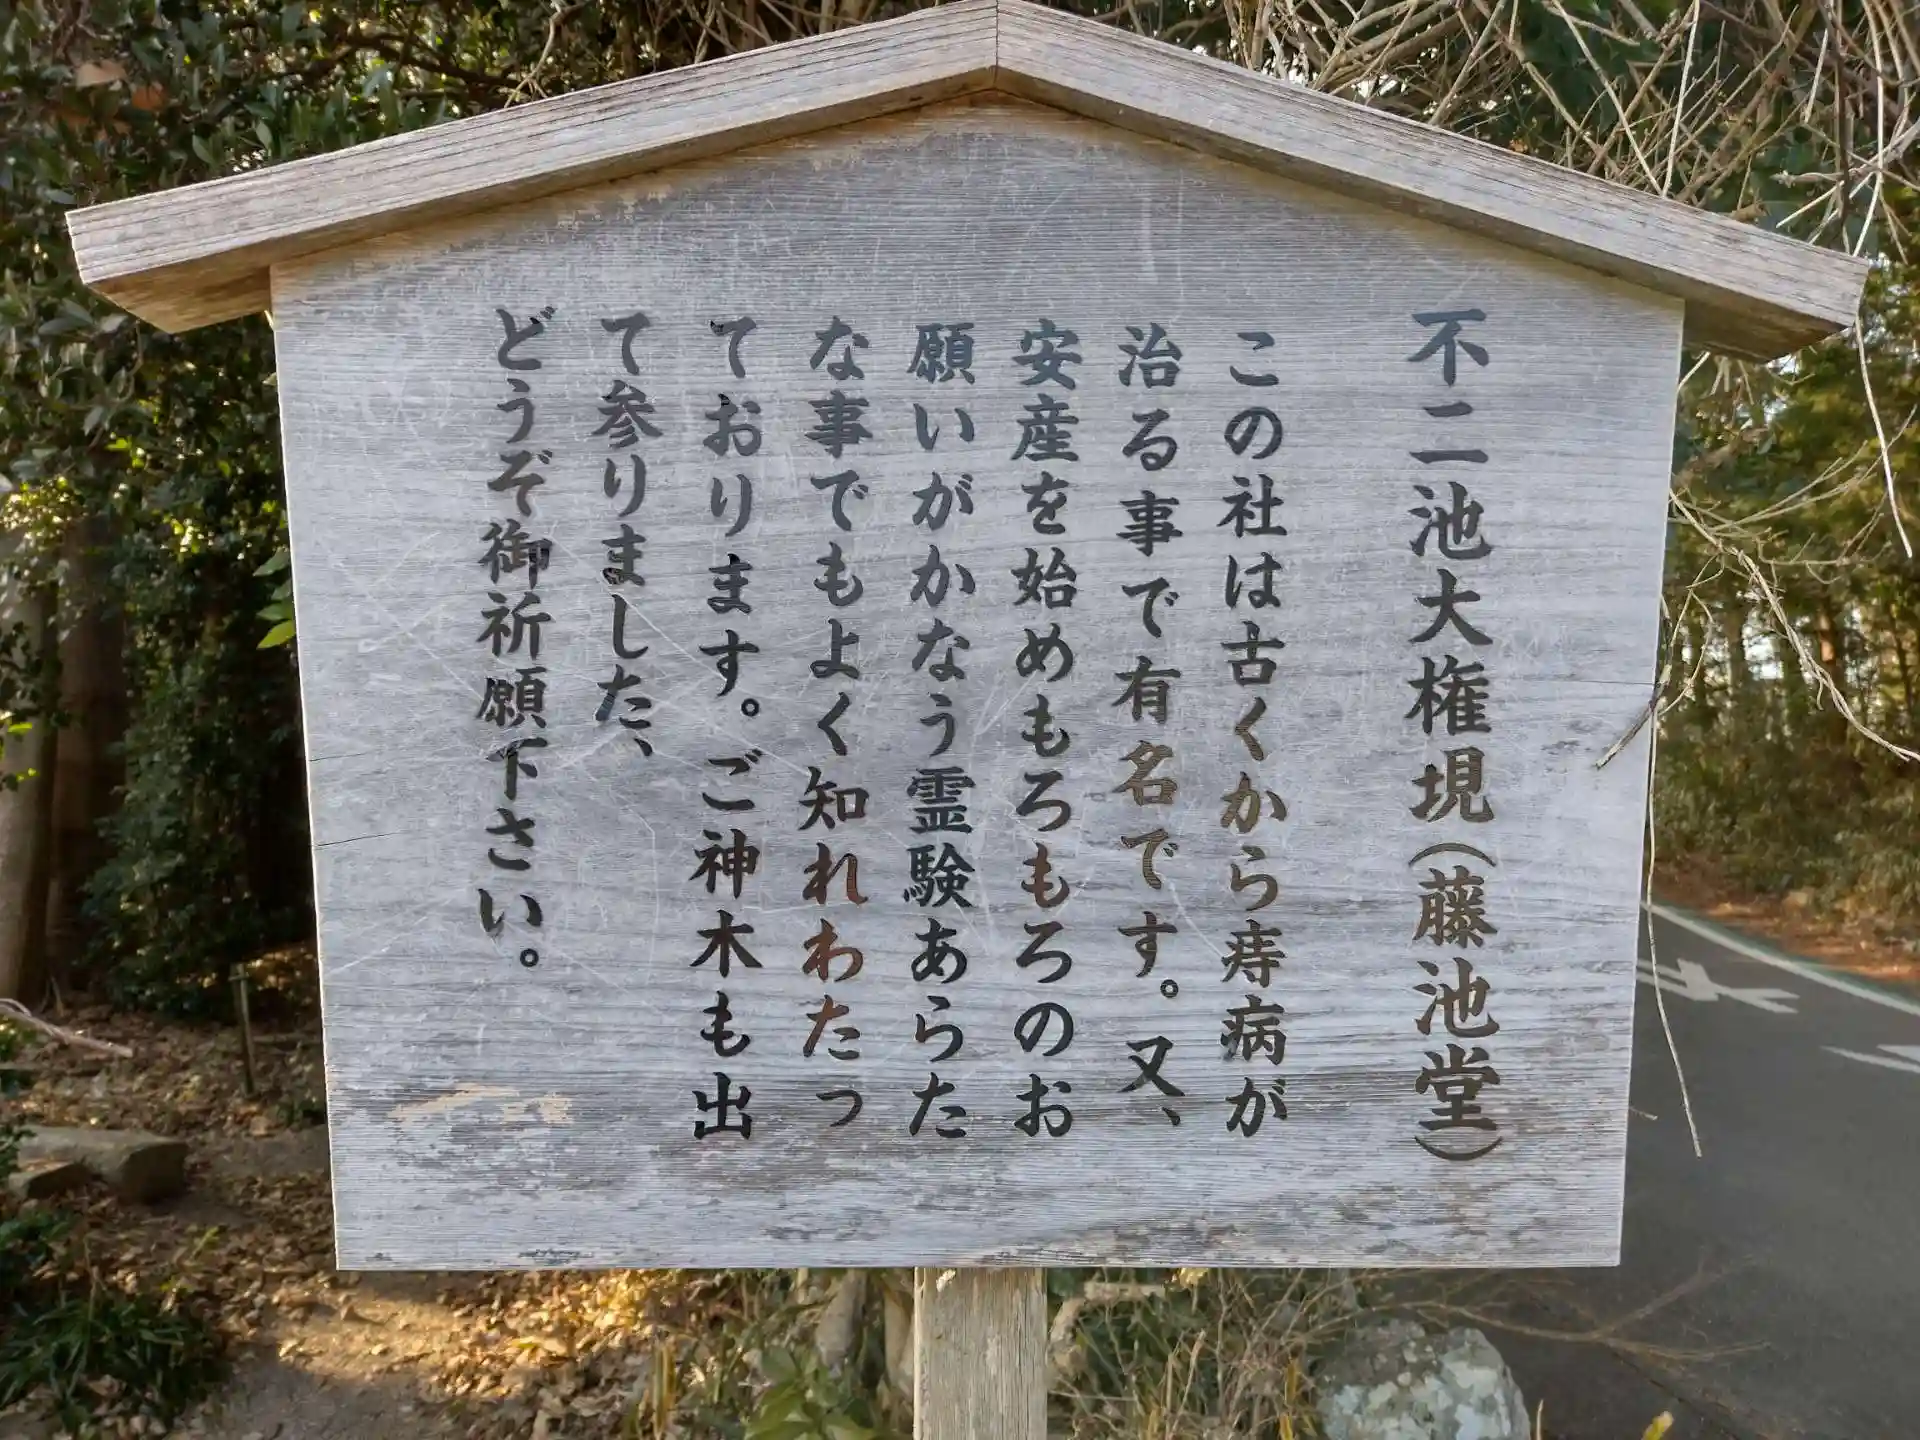 不二池大権現(藤池堂)
この社は古くから痔病が
治る事で有名です。又、
安産を始めもろもろのお
願いがかなう霊験あらた
な事でもよく知れわたっ
ております。ご神木も出
て参りました、
どうぞ御祈願下さい。